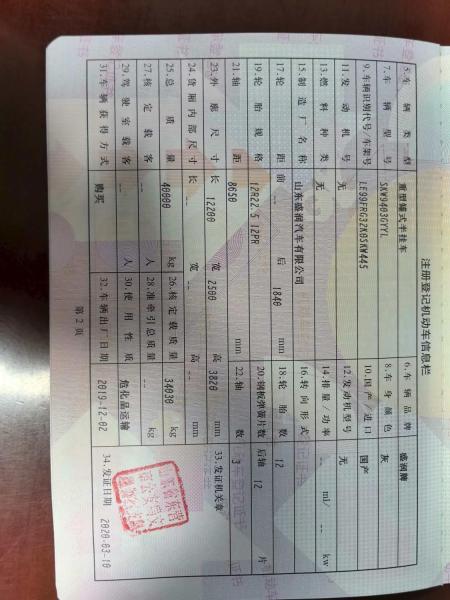 注册登记机动车信息栏
5.车辆类型 重型罐式半挂车 6.车辆品牌 盛润牌
7.车辆型号 SKW9403GYYL 8.车身颜色 灰
9.车辆识别代号/车架号 LE99FRG32K0SKW445 10.国产/进口 国产
11.发动机号 无 12.发动机型号 无
13.燃料种类 无 14.排量/功率 -- ml/ -- kw
15.制造厂名称 山东盛润汽车有限公司 16.转向形式
17.轮距 前 -- 后 1840 mm 18.轮胎数 12
19.轮胎规格 12R22.5 12PR 20.钢板弹簧片数 后轴 12 片
21.轴距 8650 mm 22.轴数 3
23.外廓尺寸 长 12200 宽 2500 高 3820 mm 33.发证机关章
24.货厢内部尺寸 长 -- 宽 -- 高 -- mm
25.总质量 40000 kg 26.核定载质量 34030 kg
27.核定载客 -- 人 28.准牵引总质量 -- kg
29.驾驶室载客 -- 人 30.使用性质 危化品运输
31.车辆获得方式 购买 32.车辆出厂日期 2019-12-02 34.发证日期 2020-03-10
第2页